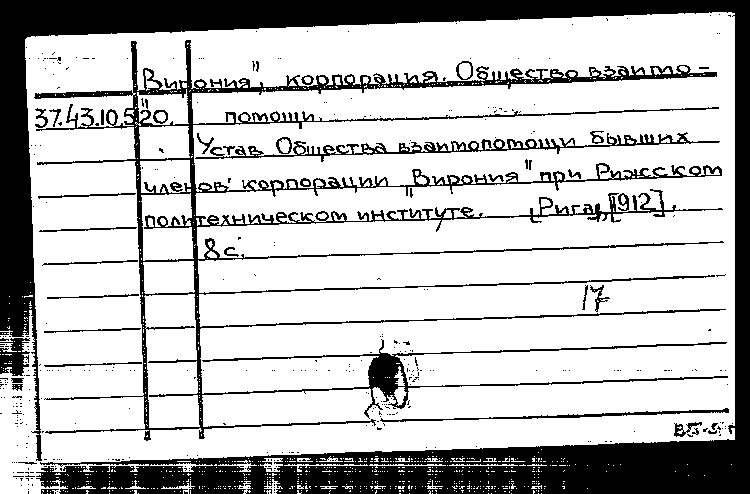 "Вирония", корпорация. Общество взаимо-
37.43.10.520. помощи.
Устав Общества взаимопомощи бывших
членов корпорации "Вирония" при Рижском
политехническом институте. [Рига], [1912].
8 с.
17